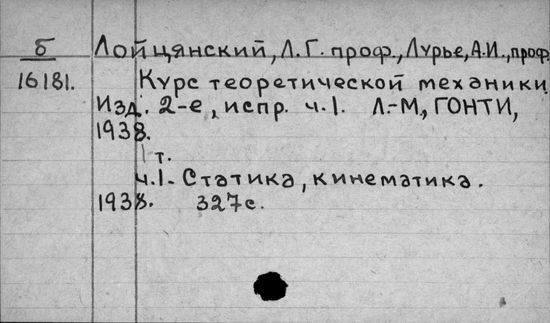 б Лойцянский, Л.Г. проф., Лурье, А.И., проф.
16181. Курс теоретической механики
Изд. 2-е, испр. ч.1. Л.-М., ГОНТИ,
1938.
1 т.
ч.1- Статика, кинематика.
1938. 327с.